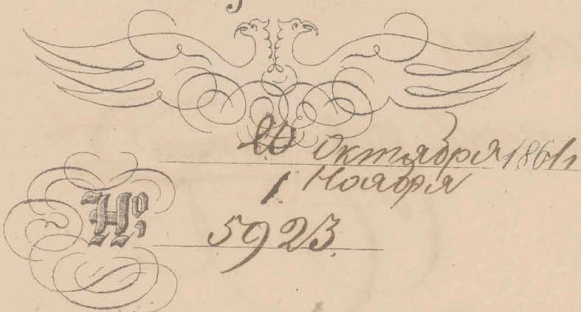 20 Октября 1861
1 Ноября
№ 5923.